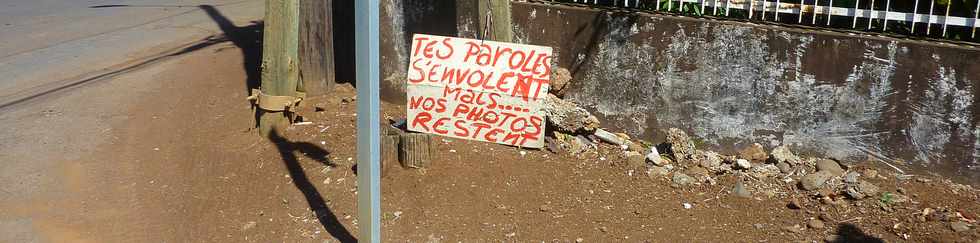 TES PAROLES
S'ENVOLENT
MAIS....
NOS PHOTOS
RESTENT